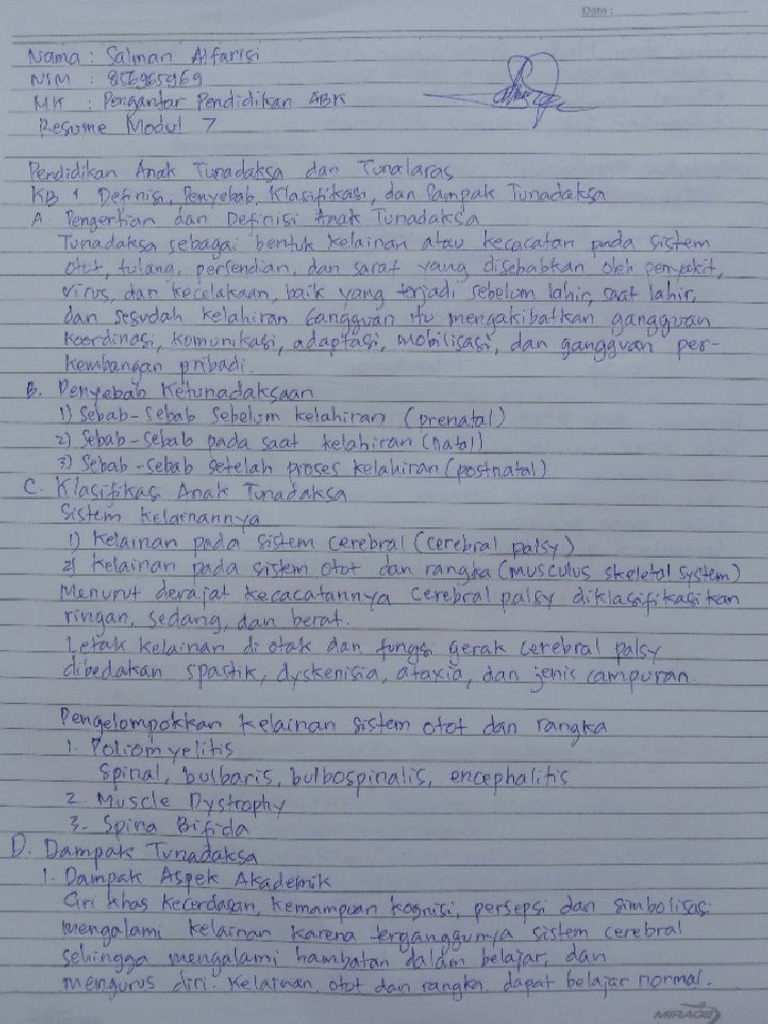 Date :
Nama : Salman Alfarisi
NIM : 856965969
MK : Pengantar Pendidikan ABK
Resume Modul 7
Pendidikan Anak Tunadaksa dan Tunalaras
KB 1 Definisi, Penyebab, Klasifikasi, dan Dampak Tunadaksa
A. Pengertian dan Definisi Anak Tunadaksa
Tunadaksa sebagai bentuk kelainan atau kecacatan pada sistem
otot, tulang, persendian, dan saraf yang disebabkan oleh penyakit,
virus, dan kecelakaan, baik yang terjadi sebelum lahir, saat lahir,
dan sesudah kelahiran Gangguan itu mengakibatkan gangguan
koordinasi, komunikasi, adaptasi, mobilisasi, dan gangguan per-
kembangan pribadi.
B. Penyebab Ketunadaksaan
1) Sebab-Sebab Sebelum kelahiran (prenatal)
2) Sebab-Sebab pada saat kelahiran (natal)
3) Sebab-Sebab setelah proses kelahiran (postnatal)
C. Klasifikasi Anak Tunadaksa
Sistem kelaenannya
1) Kelainan pada sistem cerebral (cerebral palsy)
2) kelainan pada sistem otot dan rangka (musculus skeletal system)
Menurut derajat kecacatannya cerebral palsy diklasifikasikan
ringan, sedang, dan berat.
Letak kelainan di otak dan fungsi gerak cerebral palsy
dibedakan spastik, dyskenisia, ataxia, dan jenis campuran.
Pengelompokkan kelainan sistem otot dan rangka
1. Poliomyelitis
Spinal, bulbaris, bulbospinalis, encephalitis
2. Muscle Dystrophy
3. Spina Bifida
D. Dampak Tunadaksa
1. Dampak Aspek Akademik
Ciri khas kecerdasan, kemampuan kognisi, persepsi dan simbolisasi
mengalami kelainan karena terganggunya sistem cerebral
sehingga mengalami hambatan dalam belajar, dan
mengurus diri. Kelainan otot dan rangka dapat belajar normal.
MIRAGE